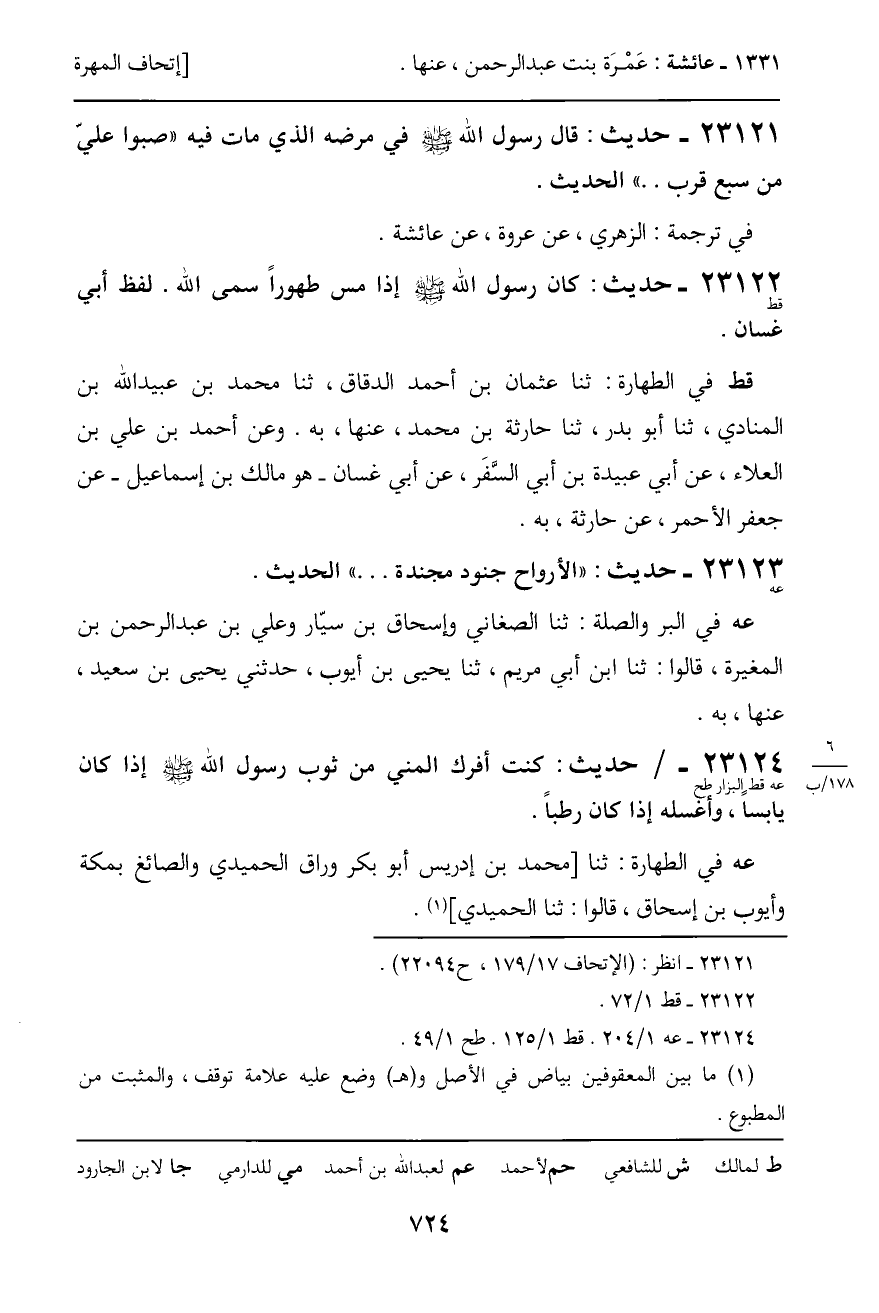 ١٣٣١ ـ عائشة : عَمْرَة بنت عبدالرحمن ، عنها .
[إتحاف المهرة
٢٣١٢١ ـ حديث : قال رسول الله ﷺ في مرضه الذي مات فيه «صبوا عليّ
من سبع قرب . .» الحديث .
في ترجمة : الزهري ، عن عروة ، عن عائشة .
٢٣١٢٢ ـ حديث : كان رسول الله ﷺ إذا مس طهوراً سمى الله . لفظ أبي
قط
غسان .
قط في الطهارة : ثنا عثمان بن أحمد الدقاق ، ثنا محمد بن عبيدالله بن
المنادي ، ثنا أبو بدر ، ثنا حارثة بن محمد ، عنها ، به . وعن أحمد بن علي بن
العلاء ، عن أبي عبيدة بن أبي السَّفَر ، عن أبي غسان ـ هو مالك بن إسماعيل ـ عن
جعفر الأحمر ، عن حارثة ، به .
٢٣١٢٣ ـ حديث : «الأرواح جنود مجندة . . .» الحديث .
عه
عه في البر والصلة : ثنا الصغاني وإسحاق بن سيّار وعلي بن عبدالرحمن بن
المغيرة ، قالوا : ثنا ابن أبي مريم ، ثنا يحيى بن أيوب ، حدثني يحيى بن سعيد ،
عنها ، به .
٢٣١٢٤ ـ / حديث : كنت أفرك المني من ثوب رسول الله ﷺ إذا كان
عه قط البزار طح
٦
١٧٨/ب
يابساً ، وأغسله إذا كان رطباً .
عه في الطهارة : ثنا [محمد بن إدريس أبو بكر وراق الحميدي والصائغ بمكة
وأيوب بن إسحاق ، قالوا : ثنا الحميدي](١) .
٢٣١٢١ ـ انظر : (الإتحاف ١٧٩/١٧ ، ح٢٢٠٩٤) .
٢٣١٢٢ ـ قط ٧٢/١ .
٢٣١٢٤ ـ عه ٢٠٤/١ . قط ١٢٥/١ . طح ٤٩/١ .
(١) ما بين المعقوفين بياض في الأصل و(هـ) وضع عليه علامة توقف ، والمثبت من
المطبوع .
ط لمالك ش للشافعي حم لأحمد عم لعبدالله بن أحمد مي للدارمي جا لابن الجارود
٧٢٤